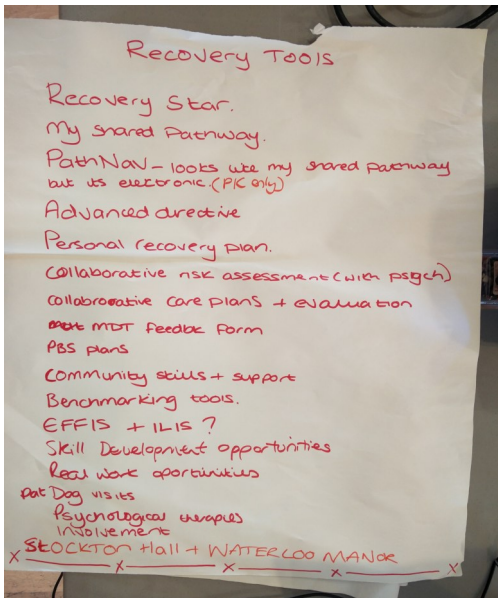 Recovery Tools
Recovery Star.
My shared Pathway.
PathNav - looks like my shared pathway
but its electronic. (PIC only)
Advanced directive
Personal recovery plan.
Collaborative risk assessment (with psych)
collabroative care plans + evaluation
MDT feedbk form
PBS plans
Community skills + support
Benchmarking tools.
EFFIS + ILIS ?
Skill Development opportunities
Real work oportunities
Pat Dog visits
Psychological therapies
involvement
STOCKTON Hall + WATERLOO MANOR
x x x x x